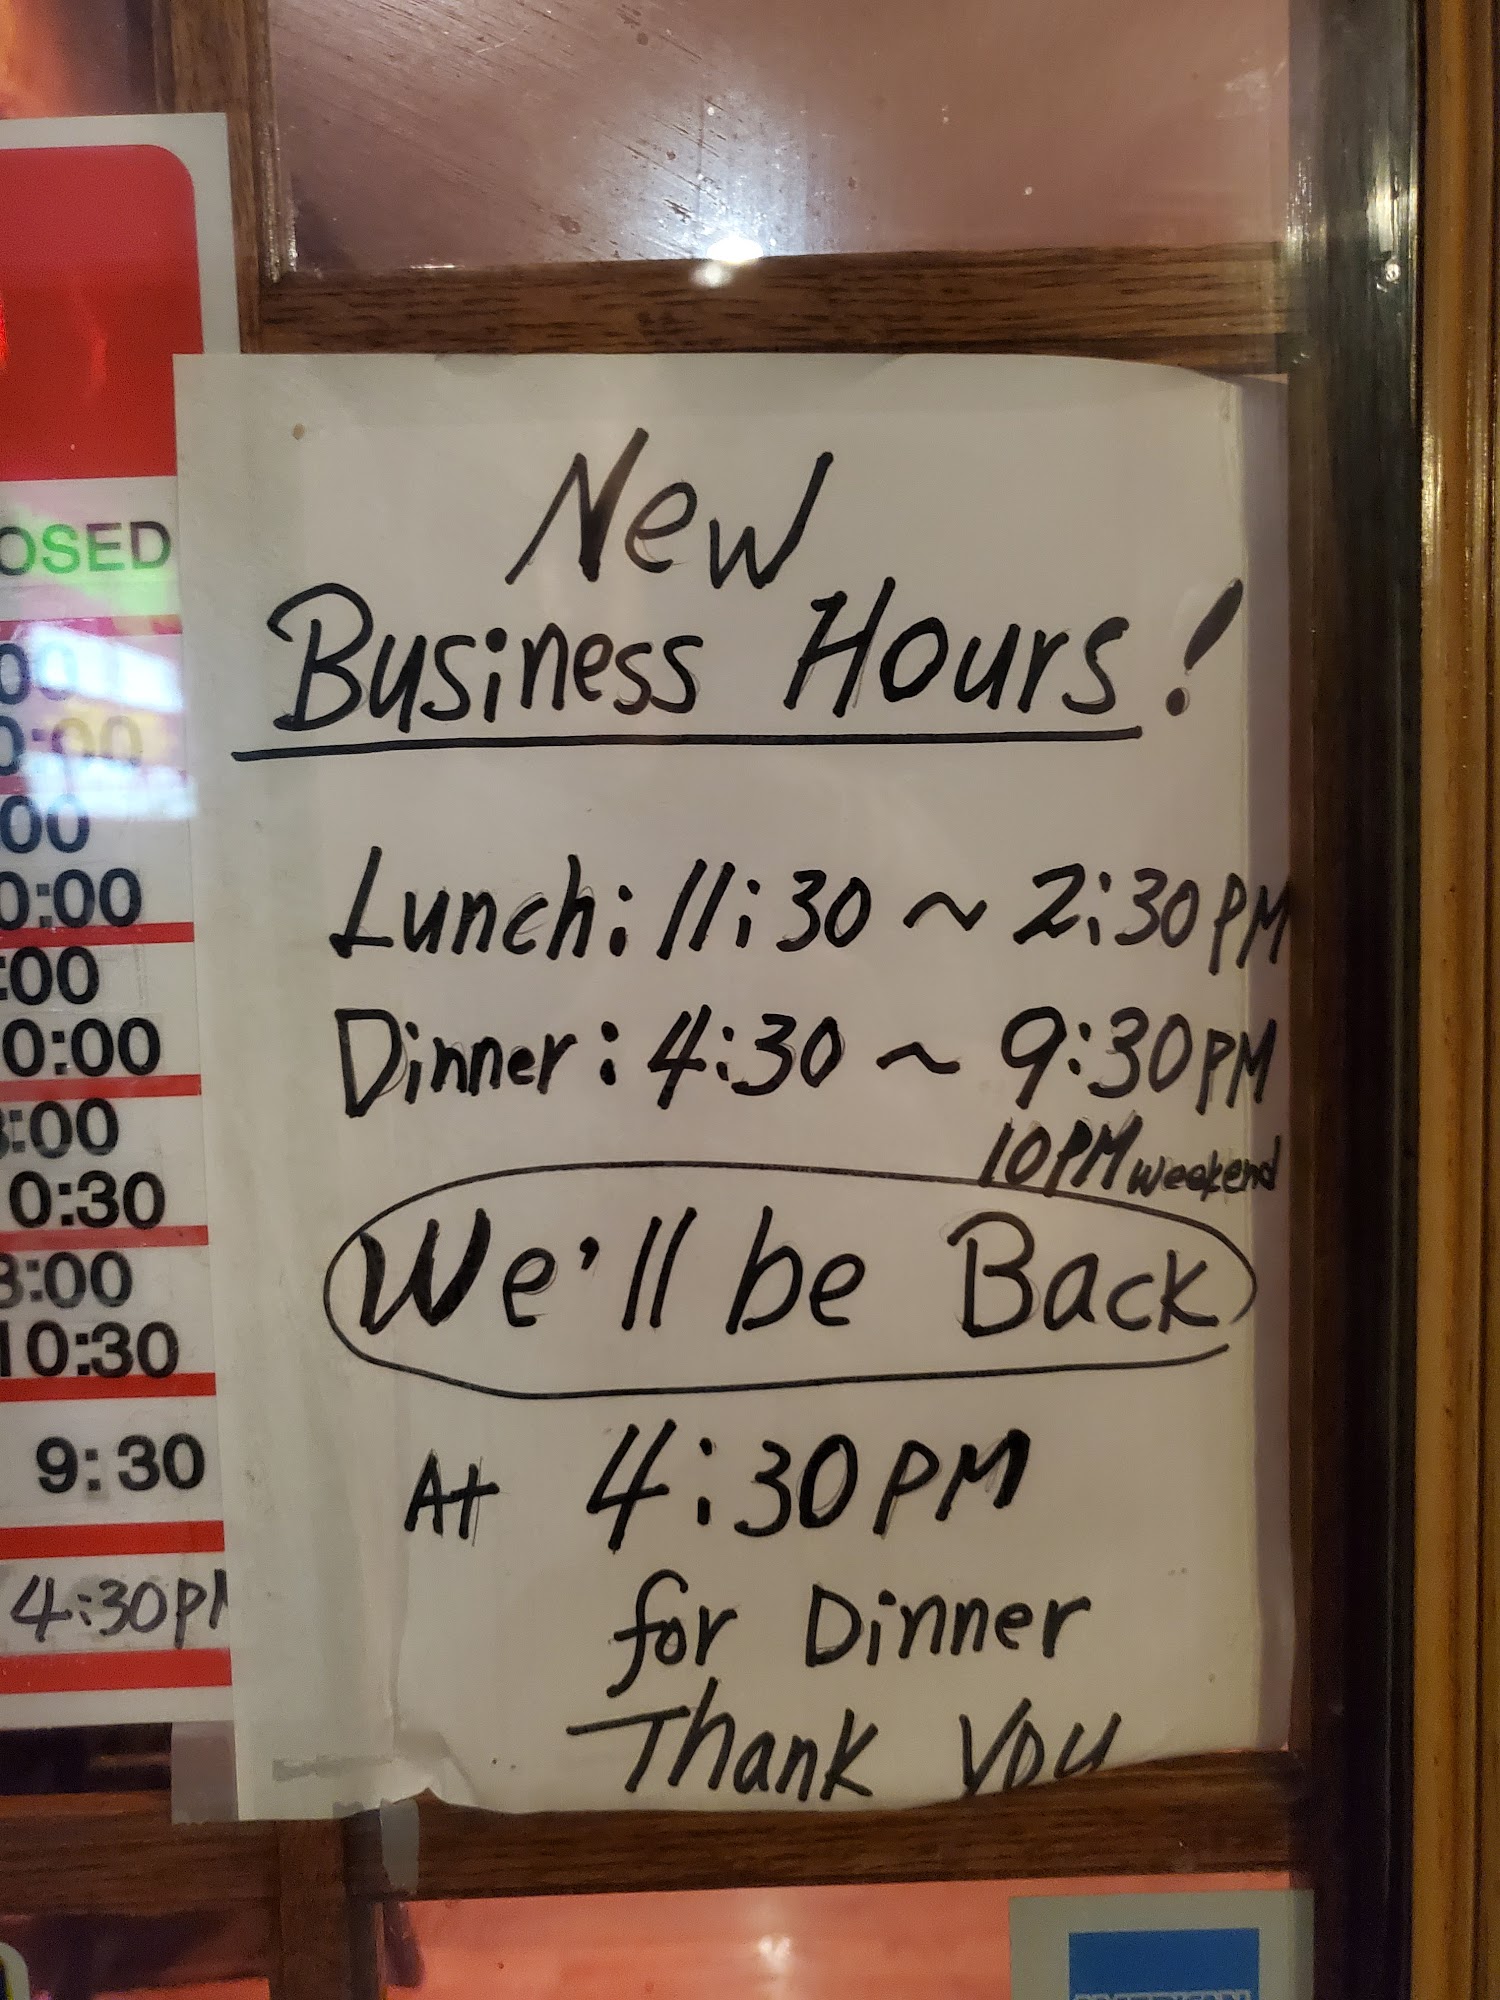 New
Business Hours!
Lunch: 11:30 ~ 2:30PM
Dinner: 4:30 ~ 9:30PM
10PM weekend
We'll be Back
At 4:30PM
for Dinner
Thank You
OSED
00
0:00
00
0:00
:00
0:00
:00
0:30
8:00
10:30
9:30
4:30PM